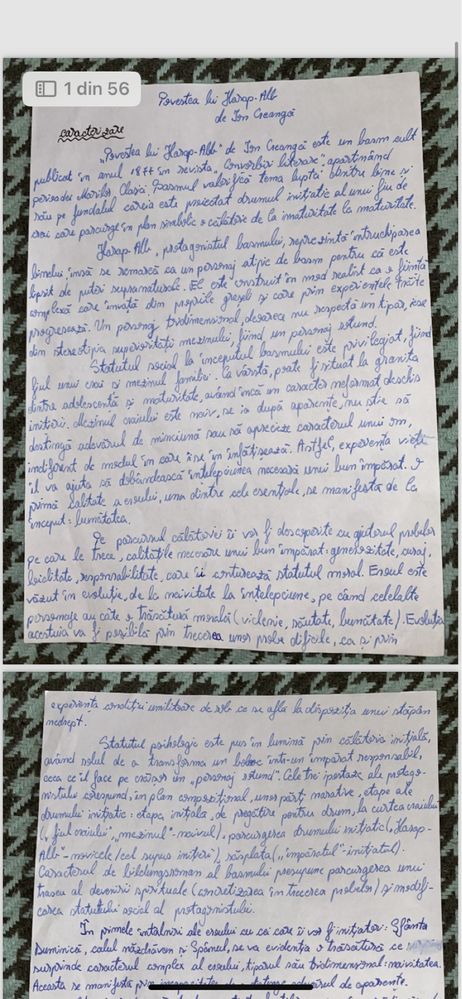 1 din 56
Povestea lui Harap-Alb
de Ion Creangă
caracterizare
"Povestea lui Harap-Alb" de Ion Creangă este un basm cult
publicat în anul 1877 în revista "Convorbiri literare", aparținând
perioadei Marilor Clasici. Basmul valorifică tema luptei dintre bine și
rău pe fundalul căreia este proiectat drumul inițiatic al unui fiu de
crai care parcurge în plan simbolic o călătorie de la imaturitate la maturitate.
Harap-Alb, protagonistul basmului, reprezintă întruchiparea
binelui, însă se remarcă ca un personaj atipic de basm pentru că este
lipsit de puteri supranaturale. El este construit în mod realist ca o ființă
complexă care învață din propriile greșeli și care prin experiențele trăite
progresează. Un personaj tridimensional, deoarece nu respectă un tipar, iese
din stereotipia superiorității mezinului, fiind un personaj rotund.
Statutul social la începutul basmului este privilegiat, fiind
fiul unui crai și mezinul familiei. Ca vârstă, poate fi situat la granița
dintre adolescență și maturitate, având încă un caracter neformat deschis
inițierii. Mezinul craiului este naiv, se ia după aparențe, nu știe să
distingă adevărul de minciună sau să aprecieze caracterul unui om,
indiferent de modul în care i se înfățișează. Astfel, experiența vieții
îl va ajuta să dobândească înțelepciunea necesară unui bun împărat. O
primă calitate a eroului, una dintre cele esențiale, se manifestă de la
început: bunătatea.
Pe parcursul călătoriei îi vor fi descoperite cu ajutorul probelor
pe care le trece, calitățile necesare unui bun împărat: generozitate, curaj,
loialitate, responsabilitate, care îi conturează statutul moral. Eroul este
văzut în evoluție, de la naivitate la înțelepciune, pe când celelalte
personaje au câte o trăsătură morală (viclenie, răutate, bunătate). Evoluția
acestuia va fi posibilă prin trecerea unor probe dificile, ca și prin
experiența condiției umilitoare de rob ce se află la dispoziția unui stăpân
nedrept.
Statutul psihologic este pus în lumină prin călătoria inițială,
având rolul de a transforma un boboc într-un împărat responsabil,
ceea ce îl face pe crăișor un "personaj rotund". Cele trei ipostaze ale protago-
nistului corespund, în plan compozițional, unor părți narative, etape ale
drumului inițiatic: etapa inițială, de pregătire pentru drum, la curtea craiului
("fiul craiului", "mezinul"-naivul), parcurgerea drumului inițiatic ("Harap-
Alb"-novicele/cel supus inițierii), răsplata ("împăratul"-inițiatul).
Caracterul de bildungsroman al basmului presupune parcurgerea unui
traseu al devenirii spirituale (concretizarea în trecerea probelor) și modifi-
carea statutului social al protagonistului.
În primele întâlniri ale eroului cu cei care îi vor fi inițiatori: Sfânta
Duminică, calul năzdrăvan și Spânul, se va evidenția o trăsătură ce
surprinde caracterul complex al eroului, tiparul său tridimensional: naivitatea.
Aceasta se manifestă prin incapacitatea de a distinge adevărul de aparențe.